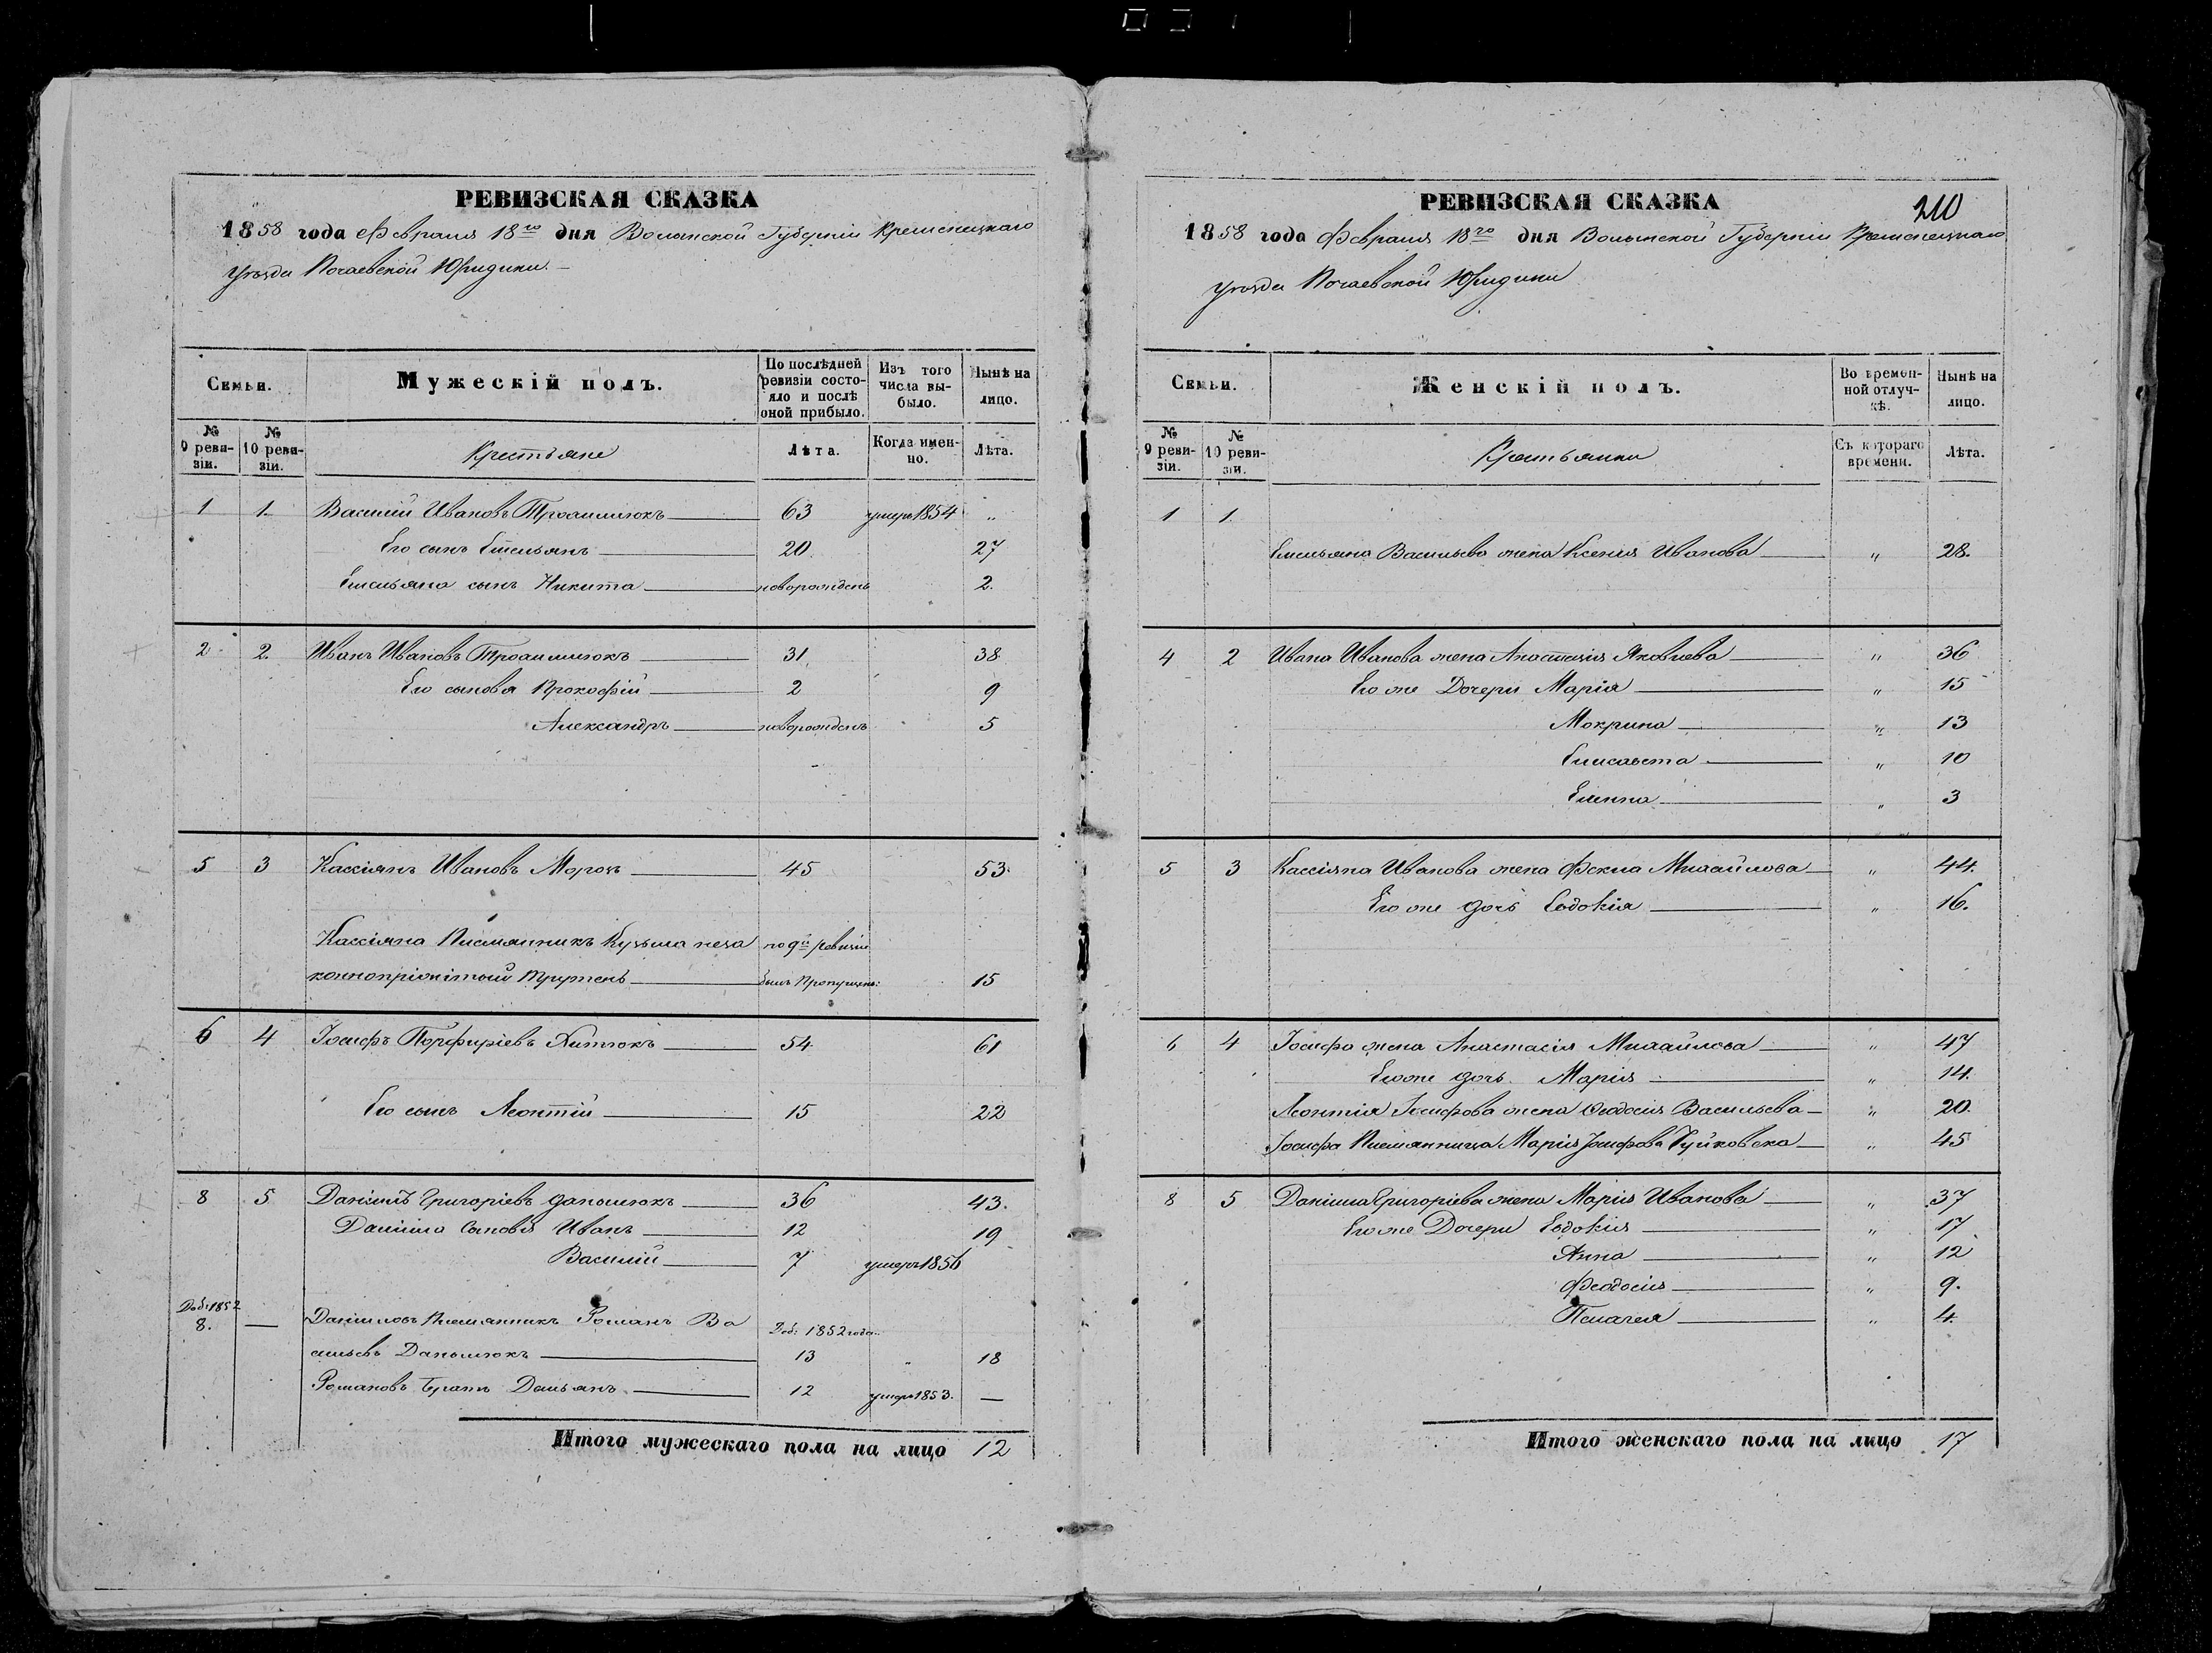 РЕВИЗСКАЯ СКАЗКА
1858 года Февраля 18го дня Волынской Губерніи Кременецкаго
уѣзда Почаевской Юридики.
Семьи. Мужескій полъ. По послѣдней ревизіи состояло и послѣ оной прибыло. Изъ того числа выбыло. Нынѣ на лицо.
№ 9 ревизіи. № 10 ревизіи. Крестьяне Лѣта. Когда именно. Лѣта.
1 1. Василій Ивановъ 63 умеръ 1854 "
Его сынъ Емельянъ 20 27
Емельяна сынъ Никита новорожденъ 2.
2 2. Иванъ Ивановъ 31 38
Его сыновя Прокофій 2 9
Александръ новорожденъ 5
5 3 Кассіянъ Ивановъ Морозъ 45 53
Кассіяна Племянникъ Кузьма неза по 9й ревизіи
коннопріжітый Трутень былъ Пропущенъ: 15
6 4 Іосифъ Порфиріевъ Хитюкъ 54 61
Его сынъ Леонтій 15 22
8 5 Даніилъ Григоріевъ Данылюкъ 36 43.
Даніила Сыновя Иванъ 12 19
Василій 7 умеръ 1856
Доб: 1852
8. — Даніиловъ Племянникъ Романъ Ва Доб: 1852 года
сильевъ Данылюкъ 13 " 18
Романовъ братъ Демьянъ 12 умеръ 1853. —
Итого мужескаго пола на лицо 12
210
РЕВИЗСКАЯ СКАЗКА
1858 года Февраля 18го дня Волынской Губерніи Кременецкаго
уѣзда Почаевской Юридики
Семьи. Женскій полъ. Во временной отлучкѣ. Нынѣ на лицо.
№ 9 ревизіи. № 10 ревизіи. Крестьянки Съ котораго времени. Лѣта.
1 1.
Емельяна Васильева жена Ксенія Иванова " 28.
4 2 Ивана Иванова жена Анастасія Яковлева " 36
Его же Дочери Марія " 15
Мокрина " 13
Елисавета " 10
Еленна " 3
5 3 Кассіяна Иванова жена Фекла Михайлова " 44.
Его же дочь Евдокія " 16.
6 4 Іосифа жена Анастасія Михайлова " 47
Его же дочь Марія " 14.
Леонтія Іосифова жена Феодосія Васильева " 20.
Іосифа Племянница Марія Іосифова " 45
8 5 Даніила Григоріева жена Марія Иванова " 37
Его же Дочери Евдокія " 17
Анна " 12
Феодосія " 9.
Пелагея " 4.
Итого женскаго пола на лицо 17